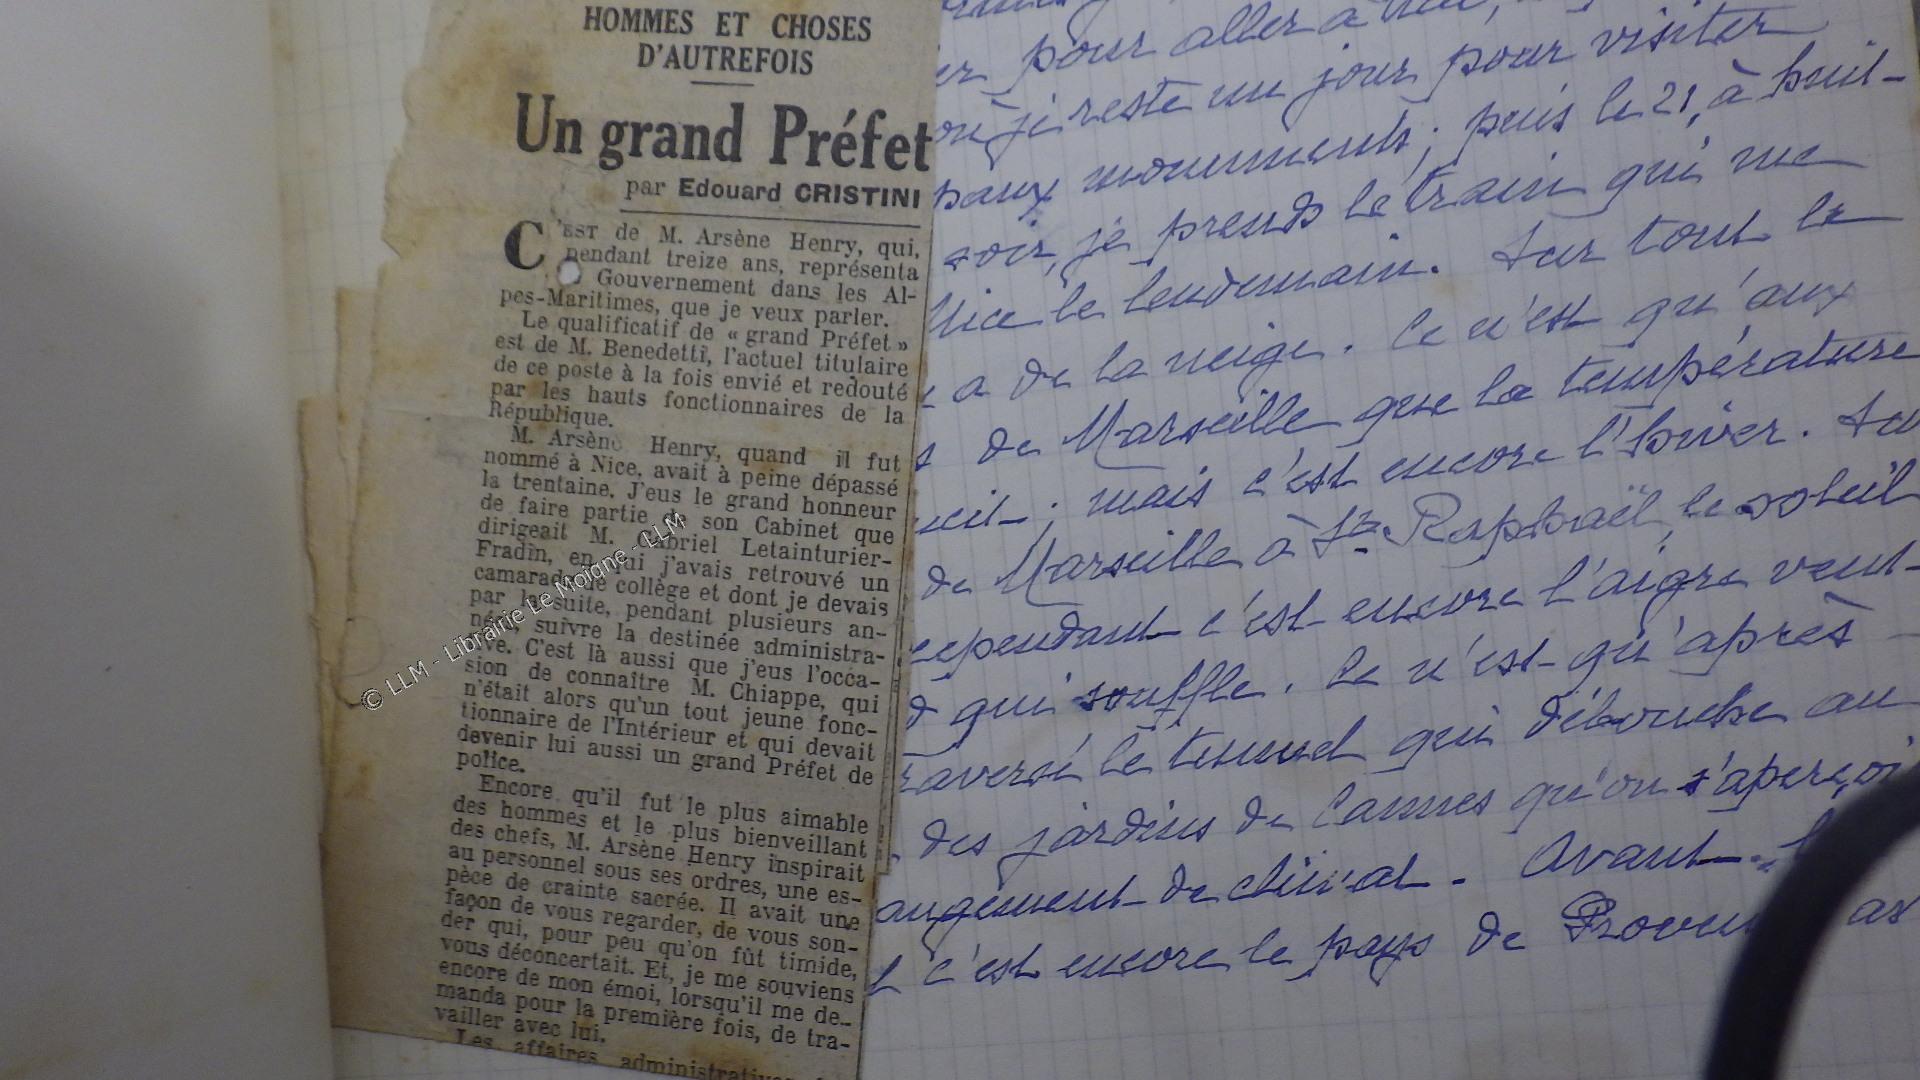 HOMMES ET CHOSES
D'AUTREFOIS
Un grand Préfet
par Edouard CRISTINI
C'EST de M. Arsène Henry, qui,
pendant treize ans, représenta
Gouvernement dans les Al-
pes-Maritimes, que je veux parler.
Le qualificatif de « grand Préfet »
est de M. Benedetti, l'actuel titulaire
de ce poste à la fois envié et redouté
par les hauts fonctionnaires de la
République.
M. Arsène Henry, quand il fut
nommé à Nice, avait à peine dépassé
la trentaine. J'eus le grand honneur
de faire partie de son Cabinet que
dirigeait M. Gabriel Letainturier-
Fradin, en qui j'avais retrouvé un
camarade de collège et dont je devais
par la suite, pendant plusieurs an-
nées, suivre la destinée administra-
tive. C'est là aussi que j'eus l'occa-
sion de connaître M. Chiappe, qui
n'était alors qu'un tout jeune fonc-
tionnaire de l'Intérieur et qui devait
devenir lui aussi un grand Préfet de
police.
Encore qu'il fut le plus aimable
des hommes et le plus bienveillant
des chefs, M. Arsène Henry inspirait
au personnel sous ses ordres, une es-
pèce de crainte sacrée. Il avait une
façon de vous regarder, de vous son-
der qui, pour peu qu'on fût timide,
vous déconcertait. Et, je me souviens
encore de mon émoi, lorsqu'il me de-
manda pour la première fois, de tra-
vailler avec lui.
Les affaires administratives
pour aller à
où je reste un jour pour visiter
paux monuments ; puis le 21, à huit
soir, je prends le train qui me
Nice le lendemain. Sur tout le
a de la neige. Ce n'est qu'aux
de Marseille que la température
; mais c'est encore l'hiver.
de Marseille à St Raphaël, le soleil
cependant c'est encore l'aigre vent
qui souffle. Ce n'est qu'après
traversé le tunnel qui débouche au
des jardins de Cannes qu'on s'aperçoi
angement de climat. Avant
c'est encore le pays de
© LLM - Librairie Le Moigne - LLM